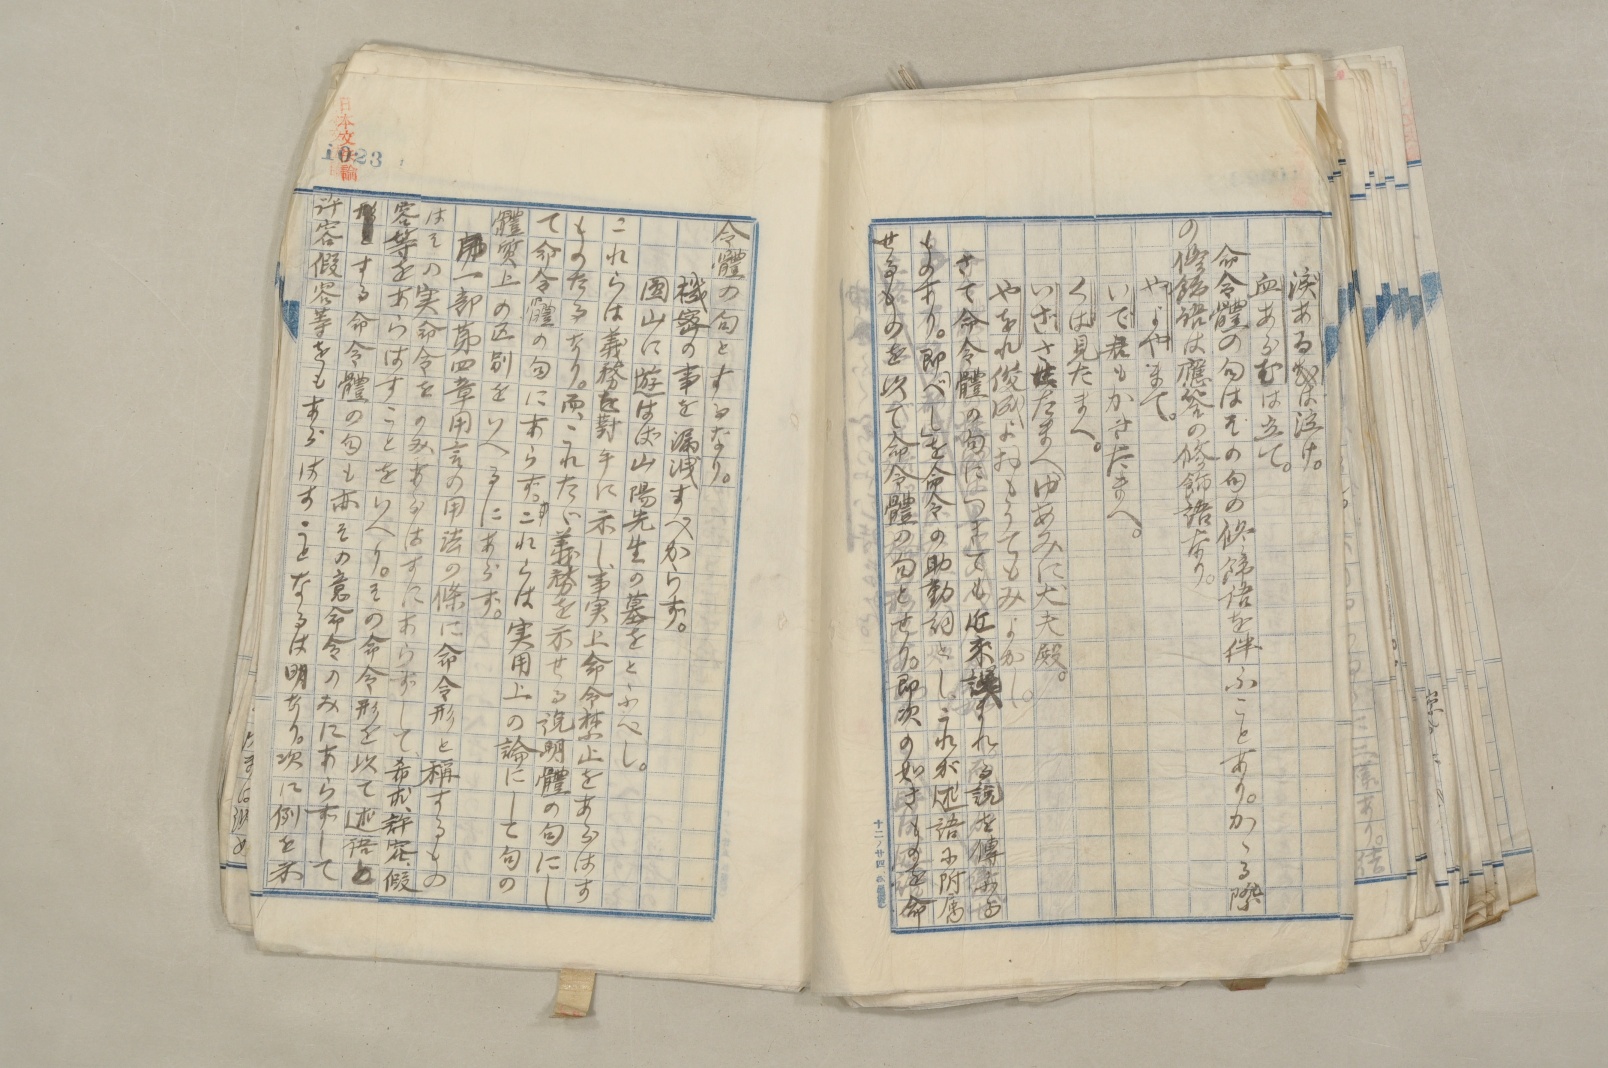 涙あるものは泣け。
血あらむは立て。
命令體の句はその句の修飾語を伴ふことあり。かゝる際
の修飾語は應答の修飾語なり。
やよやまて。
いで君もかきたまへ。
くは見たまへ。
いざさせたまへ(ゆあみに)大夫殿。
やをれ俊成よおもうてもみよかし。
さて命令體の句につきても近来誤まれる説を傳ふる
ものあり。即べしを命令の助動詞とし、これが述語に附属
せるものを以て命令體の句とせり。即次の如きものを命
令體の句とするなり。
機密の事を漏洩すべからず。
園山に遊はば山陽先生の墓をとふべし。
これらは義務を對手に示し、事実上命令禁止をあらはす
ものたるなり。而、これたゞ義務を示せる説明體の句にし
て命令體の句にあらず。これらは実用上の論にして句の
體質上の区別をいへるにあらず。
第一部第四章用言の用法の條に命令形と稱するもの
はその実命令をのみあらはすにあらずして、希求、許容、假
容等をあらはすことをいへり。その命令形を以て述語と
する命令體の句も亦その意命令のみにあらずして
許容假容等をもあらはすことなるは明なり。次に例を示
1023
十二ノ廿四